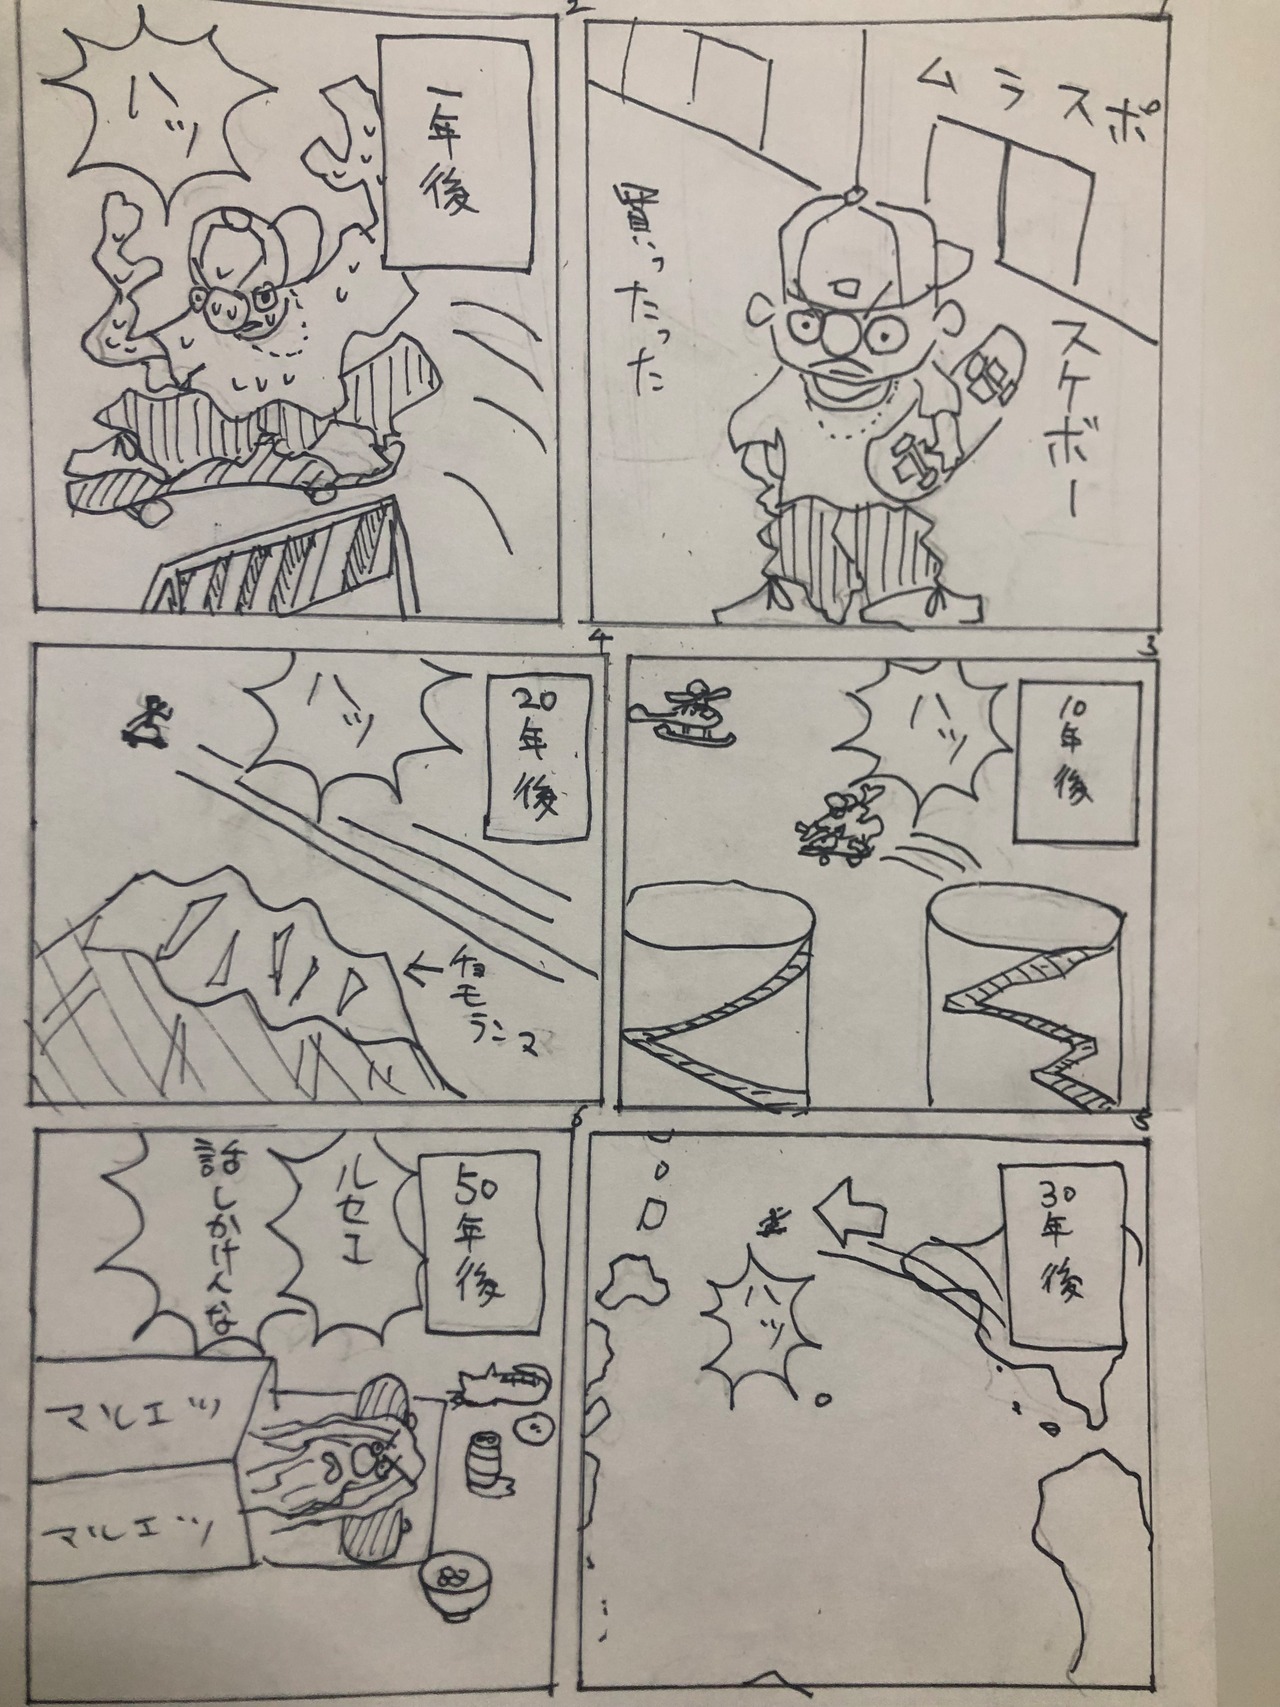 1
ムラスポ
スケボー
買ったった
2
一年後
ハッ
3
10年後
ハッ
4
20年後
ハッ
チョモランマ
5
30年後
ハッ
6
50年後
ルセエ
話しかけんな
マルエツ
マルエツ